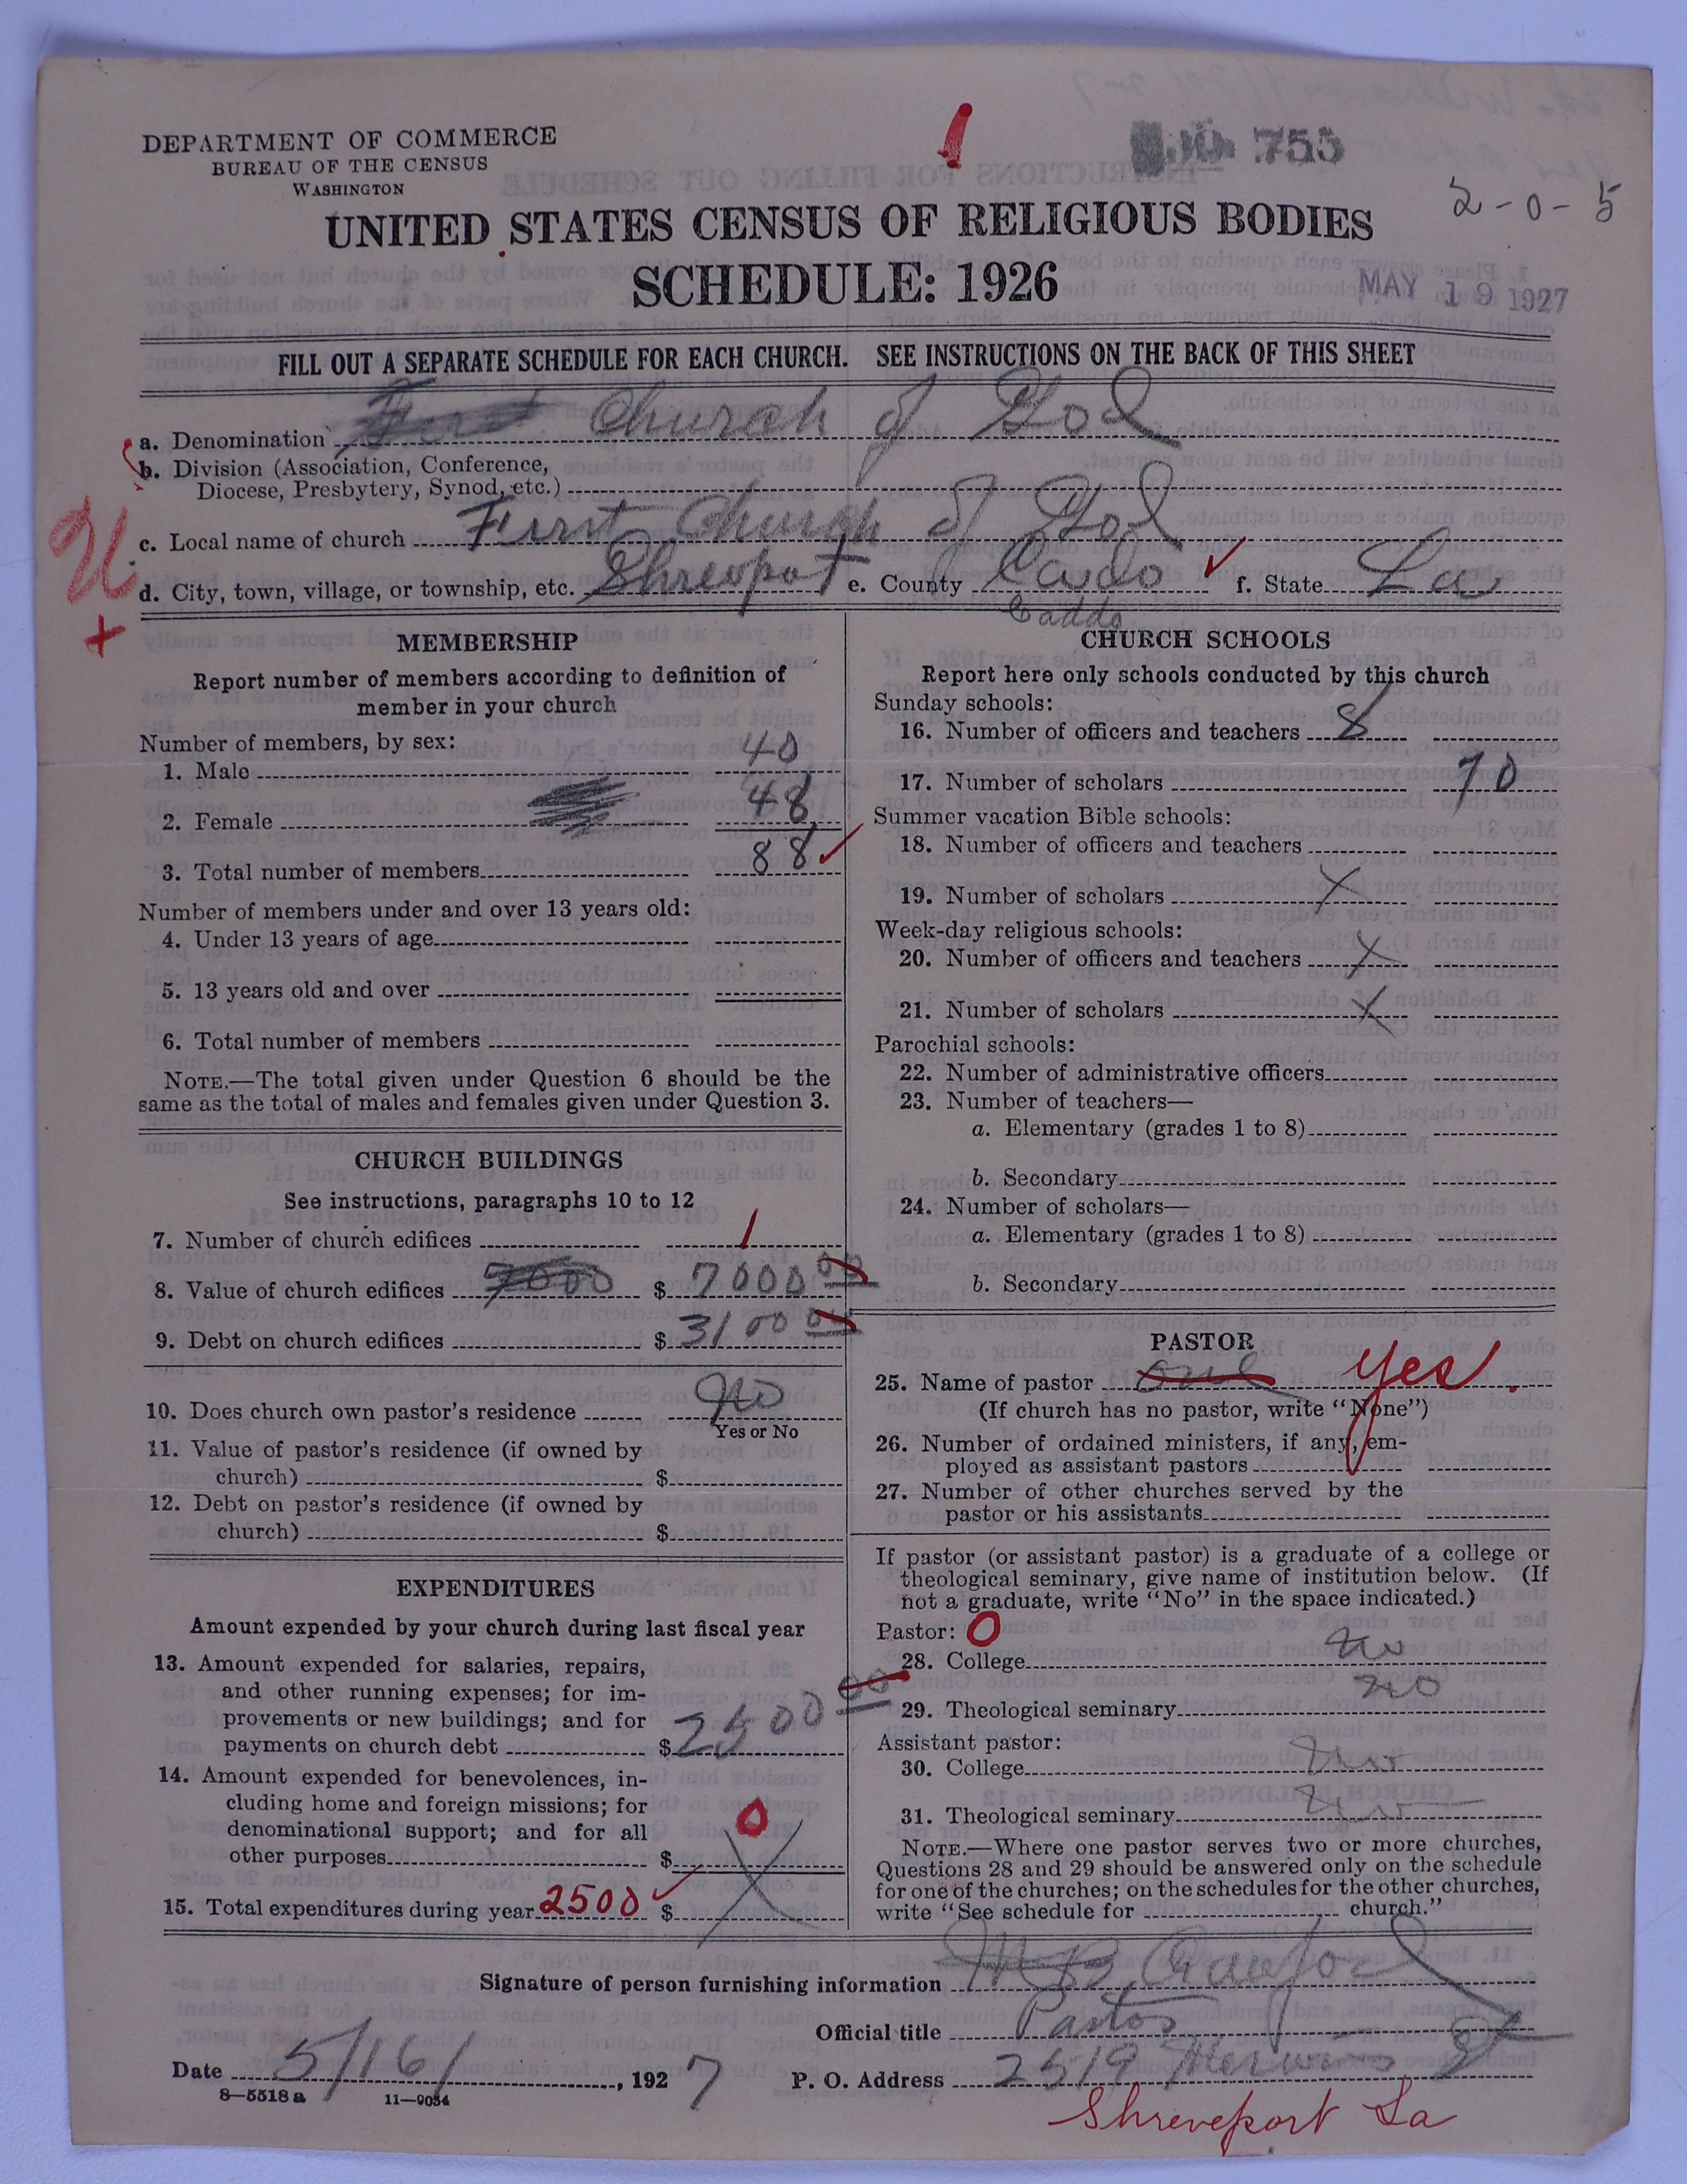 DEPARTMENT OF COMMERCE
BUREAU OF THE CENSUS
WASHINGTON
755
2-0-5
UNITED STATES CENSUS OF RELIGIOUS BODIES
SCHEDULE: 1926
MAY 19 1927
FILL OUT A SEPARATE SCHEDULE FOR EACH CHURCH. SEE INSTRUCTIONS ON THE BACK OF THIS SHEET
a. Denomination First Church of God
b. Division (Association, Conference,
Diocese, Presbytery, Synod, etc.)
c. Local name of church First Church of God
d. City, town, village, or township, etc. Shrevport e. County Cado f. State La
Caddo
MEMBERSHIP
Report number of members according to definition of
member in your church
Number of members, by sex:
1. Male 40
2. Female 48
3. Total number of members 88
Number of members under and over 13 years old:
4. Under 13 years of age
5. 13 years old and over
6. Total number of members
NOTE.—The total given under Question 6 should be the
same as the total of males and females given under Question 3.
CHURCH BUILDINGS
See instructions, paragraphs 10 to 12
7. Number of church edifices 1
8. Value of church edifices 7000 $ 7000 00
9. Debt on church edifices $ 3100 00
10. Does church own pastor's residence No
Yes or No
11. Value of pastor's residence (if owned by
church) $
12. Debt on pastor's residence (if owned by
church) $
EXPENDITURES
Amount expended by your church during last fiscal year
13. Amount expended for salaries, repairs,
and other running expenses; for im-
provements or new buildings; and for
payments on church debt $ 2500 00
14. Amount expended for benevolences, in-
cluding home and foreign missions; for
denominational support; and for all
other purposes $ 0
15. Total expenditures during year 2500 $
CHURCH SCHOOLS
Report here only schools conducted by this church
Sunday schools:
16. Number of officers and teachers 8
17. Number of scholars 70
Summer vacation Bible schools:
18. Number of officers and teachers
19. Number of scholars X
Week-day religious schools:
20. Number of officers and teachers X
21. Number of scholars X
Parochial schools:
22. Number of administrative officers
23. Number of teachers—
a. Elementary (grades 1 to 8)
b. Secondary
24. Number of scholars—
a. Elementary (grades 1 to 8)
b. Secondary
PASTOR
25. Name of pastor one yes.
(If church has no pastor, write "None")
26. Number of ordained ministers, if any, em-
ployed as assistant pastors
27. Number of other churches served by the
pastor or his assistants
If pastor (or assistant pastor) is a graduate of a college or
theological seminary, give name of institution below. (If
not a graduate, write "No" in the space indicated.)
Pastor: 0
28. College no
29. Theological seminary no
Assistant pastor:
30. College no
31. Theological seminary no
NOTE.—Where one pastor serves two or more churches,
Questions 28 and 29 should be answered only on the schedule
for one of the churches; on the schedules for the other churches,
write "See schedule for church."
Signature of person furnishing information Crawford
Official title Pastor
Date 5/16/, 1927 P. O. Address 2519 St
Shreveport La
8—5518 a 11—9054